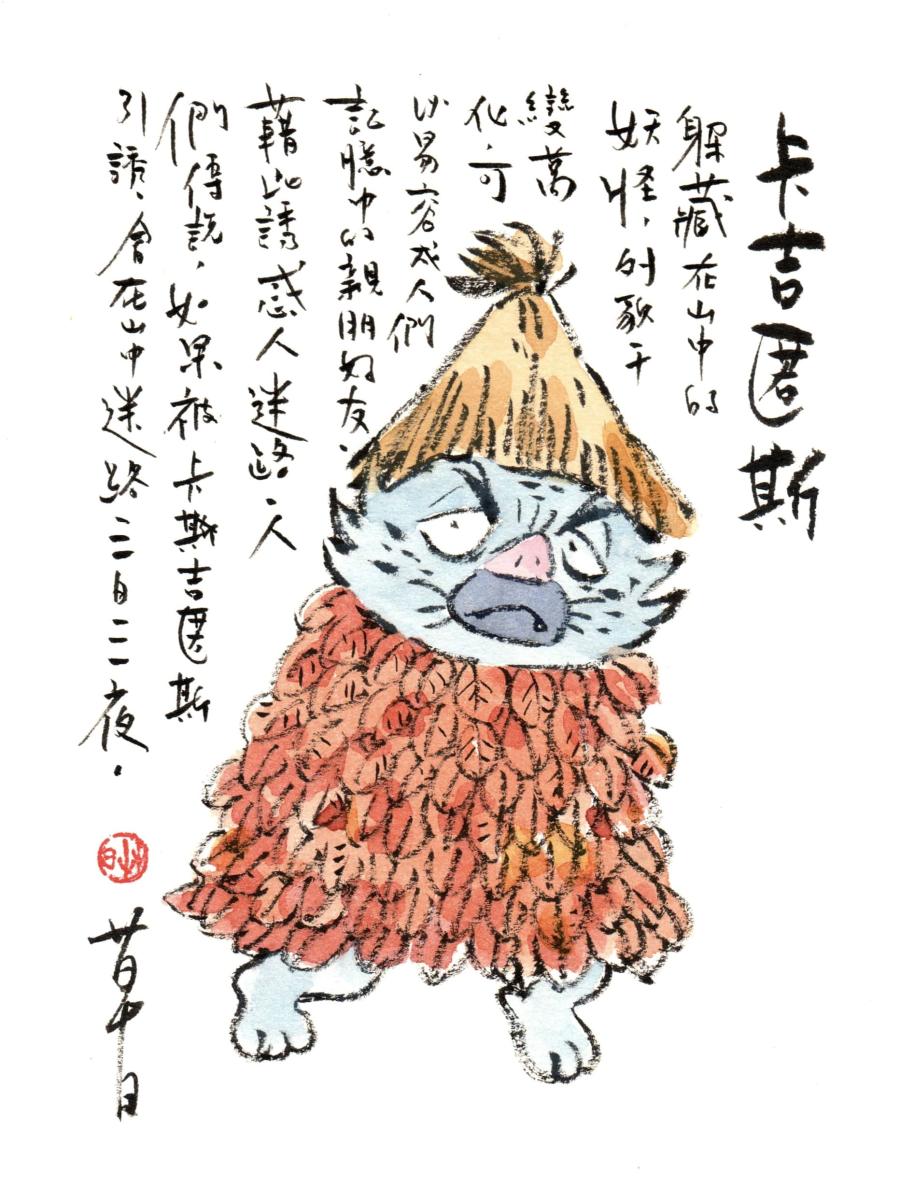 卡吉匿斯
躲藏在山中的
妖怪,外貌千
變萬
化,可
以易容成人們
記憶中的親朋好友,
藉此誘惑人迷路。人
們傳說,如果被卡斯吉匿斯
引誘,會在山中迷路三日三夜。
草日